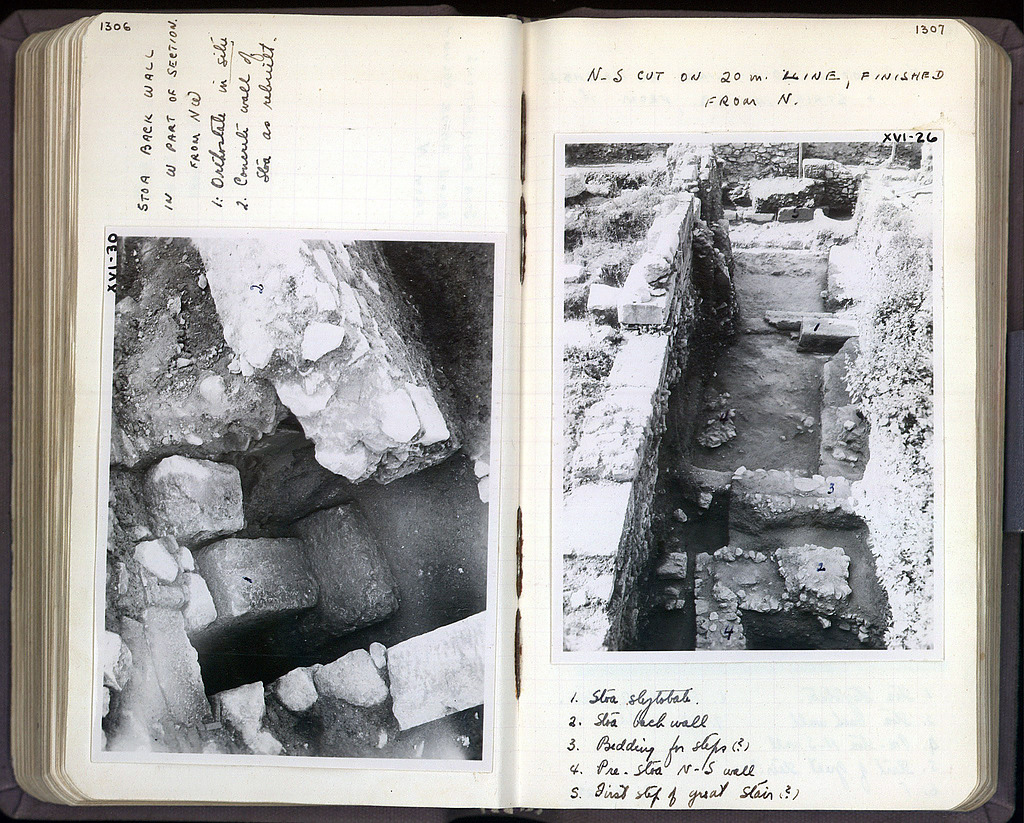 1306
STOA BACK WALL
IN W PART OF SECTION.
FROM NW
1. Orthostate in situ
2. Concrete wall of
Stoa as rebuilt.
XVI-30
2
1307
N-S CUT ON 20 m. LINE, FINISHED
FROM N.
XVI-26
5
1
3
2
4
1. Stoa stylobate.
2. Stoa back wall
3. Bedding for steps (?)
4. Pre-Stoa N-S wall
5. First step of great stair (?)